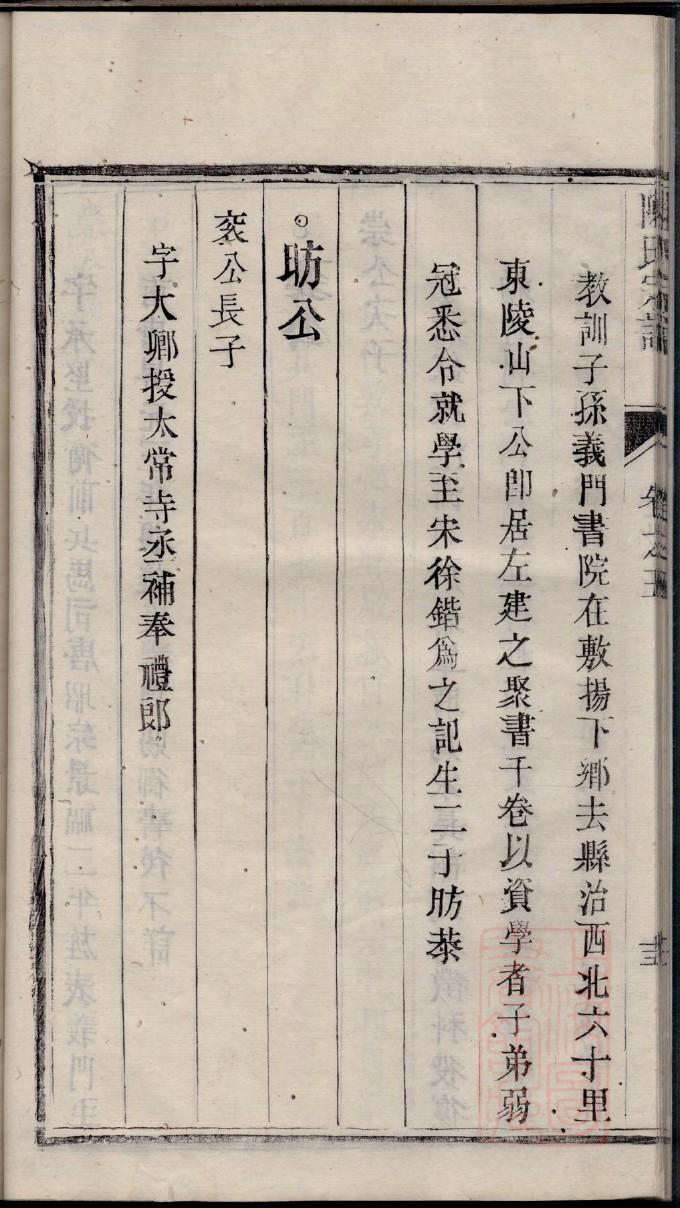 陳氏宗譜 卷之五
教訓子孫義門書院在敷揚下鄉去縣治西北六十里
東陵山下公卽居左建之聚書千卷以資學者子弟弱
冠悉令就學至宋徐鍇爲之記生二子昉恭
昉公
袞公長子
字大卿授太常寺永補奉禮郎